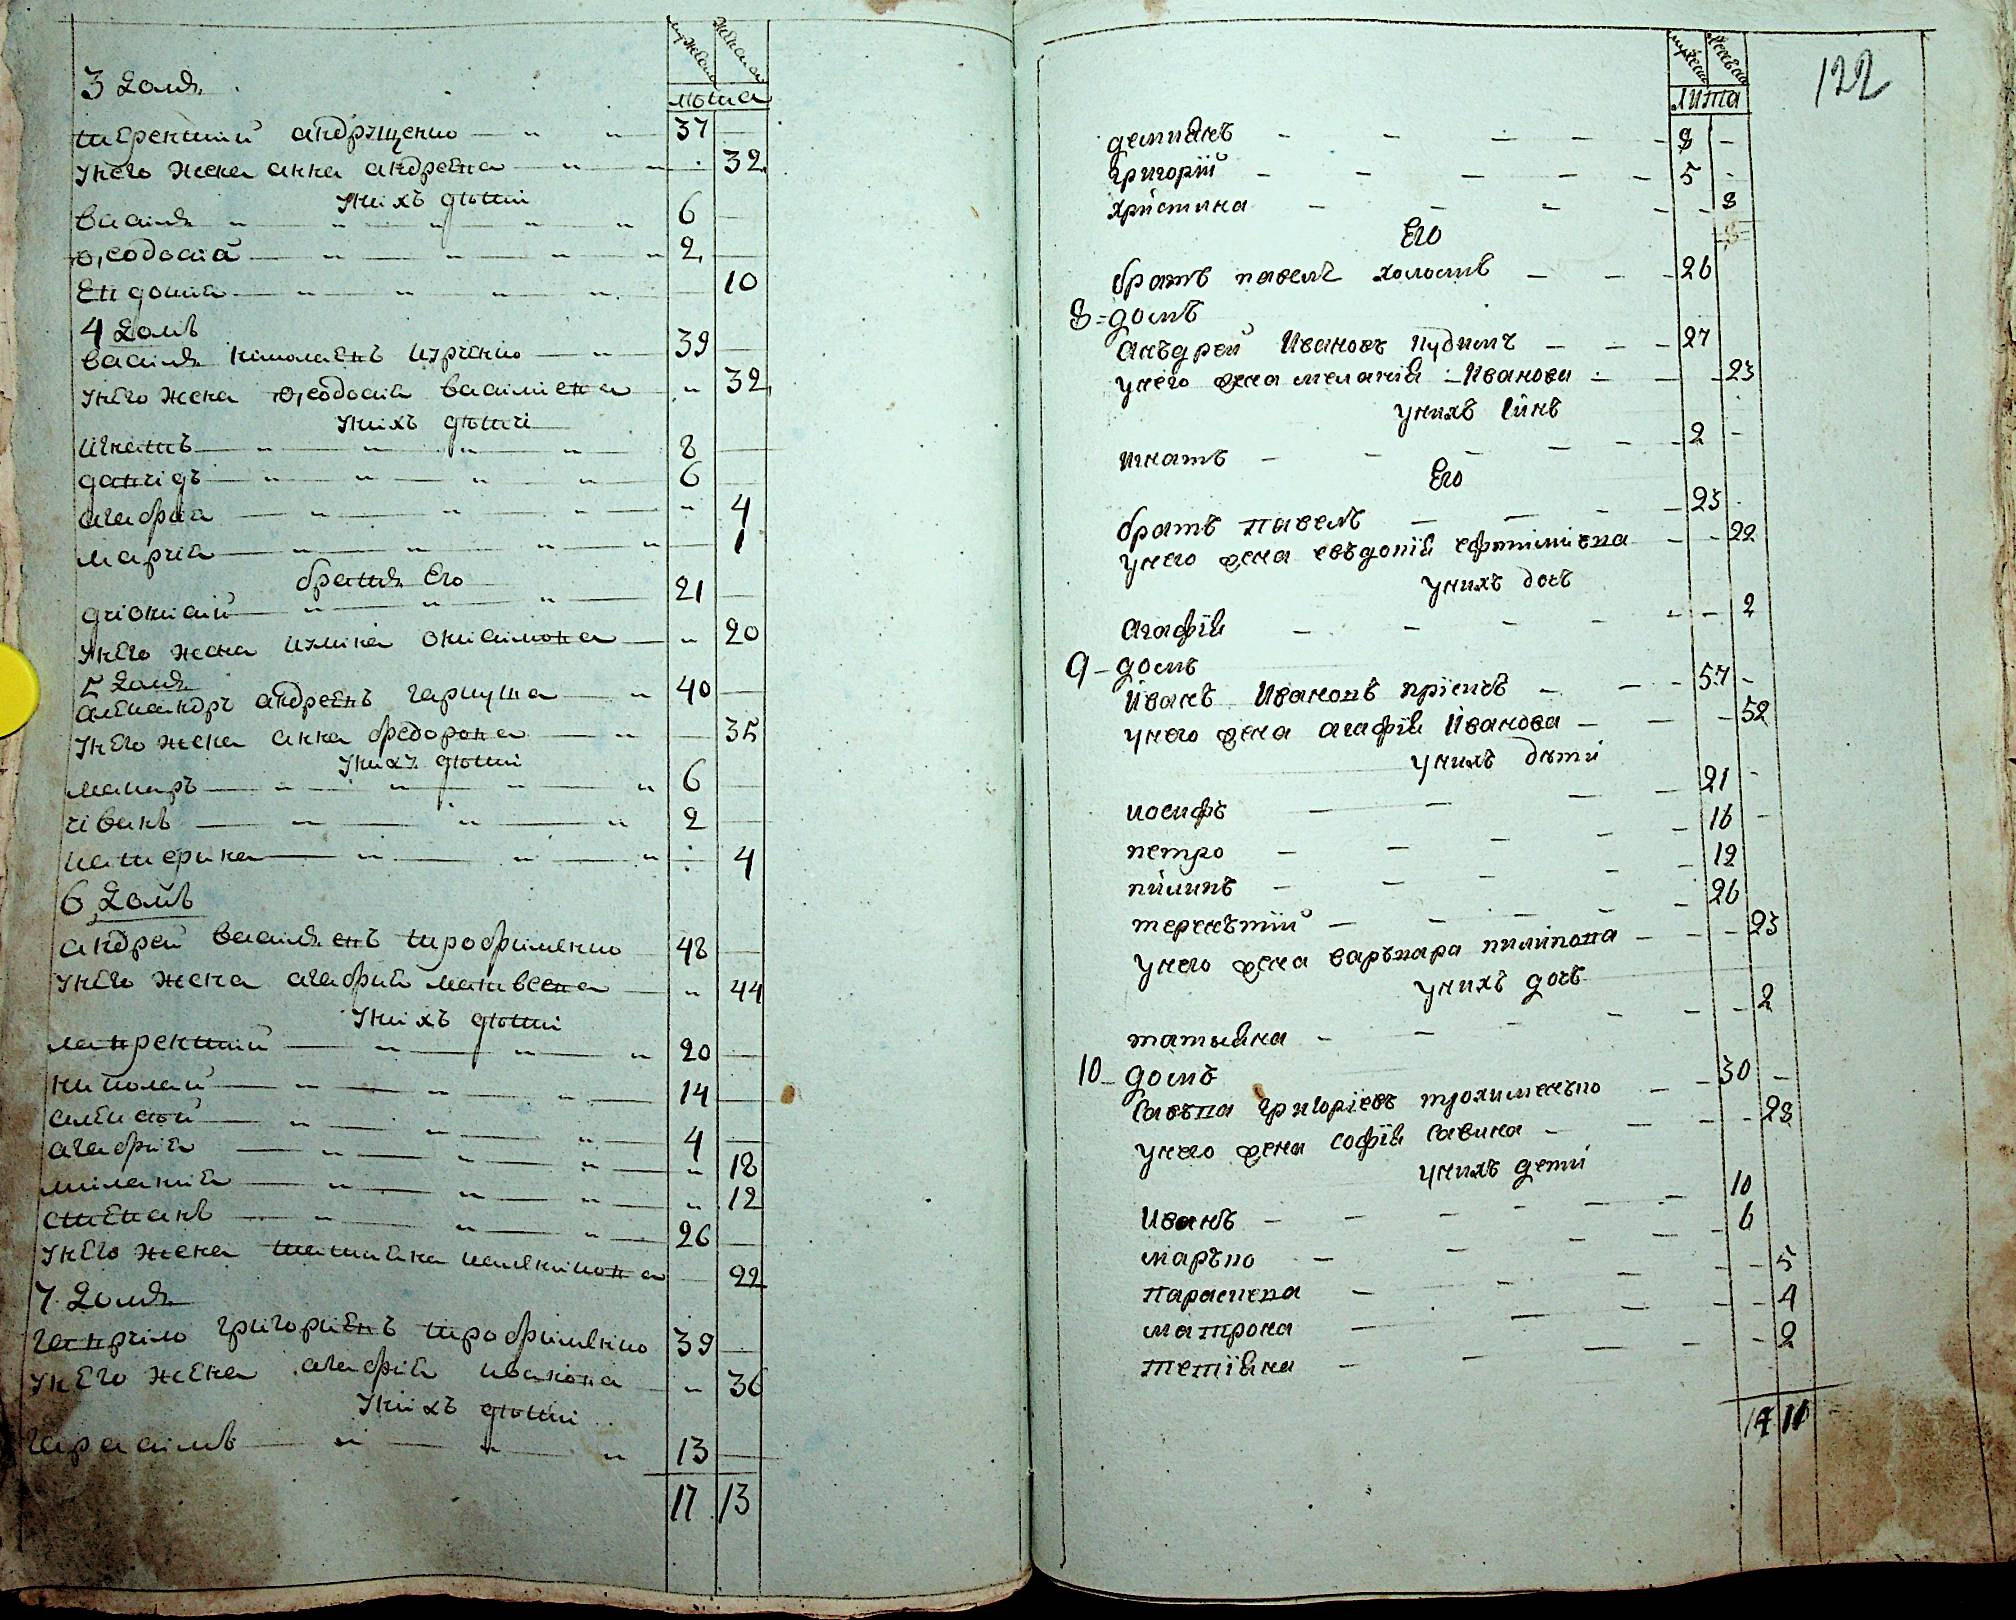 мужеска женска
лѣта
3 Домъ
терентий андрущенко 37
унего жена анна андреева 32
унихъ дѣти
василь 6
ѳеодосій 2
Евдокия 10
4 Домъ
василь николаевъ 39
унего жена ѳеодосия василиева 32
унихъ дѣти
игнатъ 8
давидъ 6
агафия 4
мария 1
братъ Его
дионисий 21
унего жена 20
5 Домъ
александръ андреевъ гаркуша 40
унего жена анна федорова 35
унихъ дѣти
макаръ 6
иванъ 2
катерина 4
6 Домъ
андрей василевъ трофименко 48
унего жена агафия матвеева 44
унихъ дѣти
лаврентий 20
николай 14
алексей 4
агафия 18
милания 12
степанъ 26
унего жена татияна 22
7 Домъ
гаврило григориевъ трофименко 39
унего жена агафия иванова 36
унихъ дѣти
гарасимъ 13
17 13
122
мужеска женска
лита
демиянъ 8
григорій 5
христина 8
Его
братъ павелъ холостъ 26
8 домъ
Анъдрей Ивановъ пудимъ 27
унего жена меланія Иванова 23
унихъ синъ
игнатъ 2
Его
братъ павелъ 23
унего жена евъдокія ефтиміева 22
унихъ дочь
агафія 2
9 домъ
Иванъ Ивановъ 57
унего жена агафія Иванова 52
унихъ дѣти
иосифъ 21
петро 16
пилипъ 12
теренътий 26
унего жена варъвара пилипова 23
унихъ дочь
татыяна 2
10 домъ
Савъка григоріевъ трохименъко 30
унего жена софія савина 28
унихъ дети
Иванъ 10
маръко 6
параскева 5
матрона 4
тетіяна 2
14 11